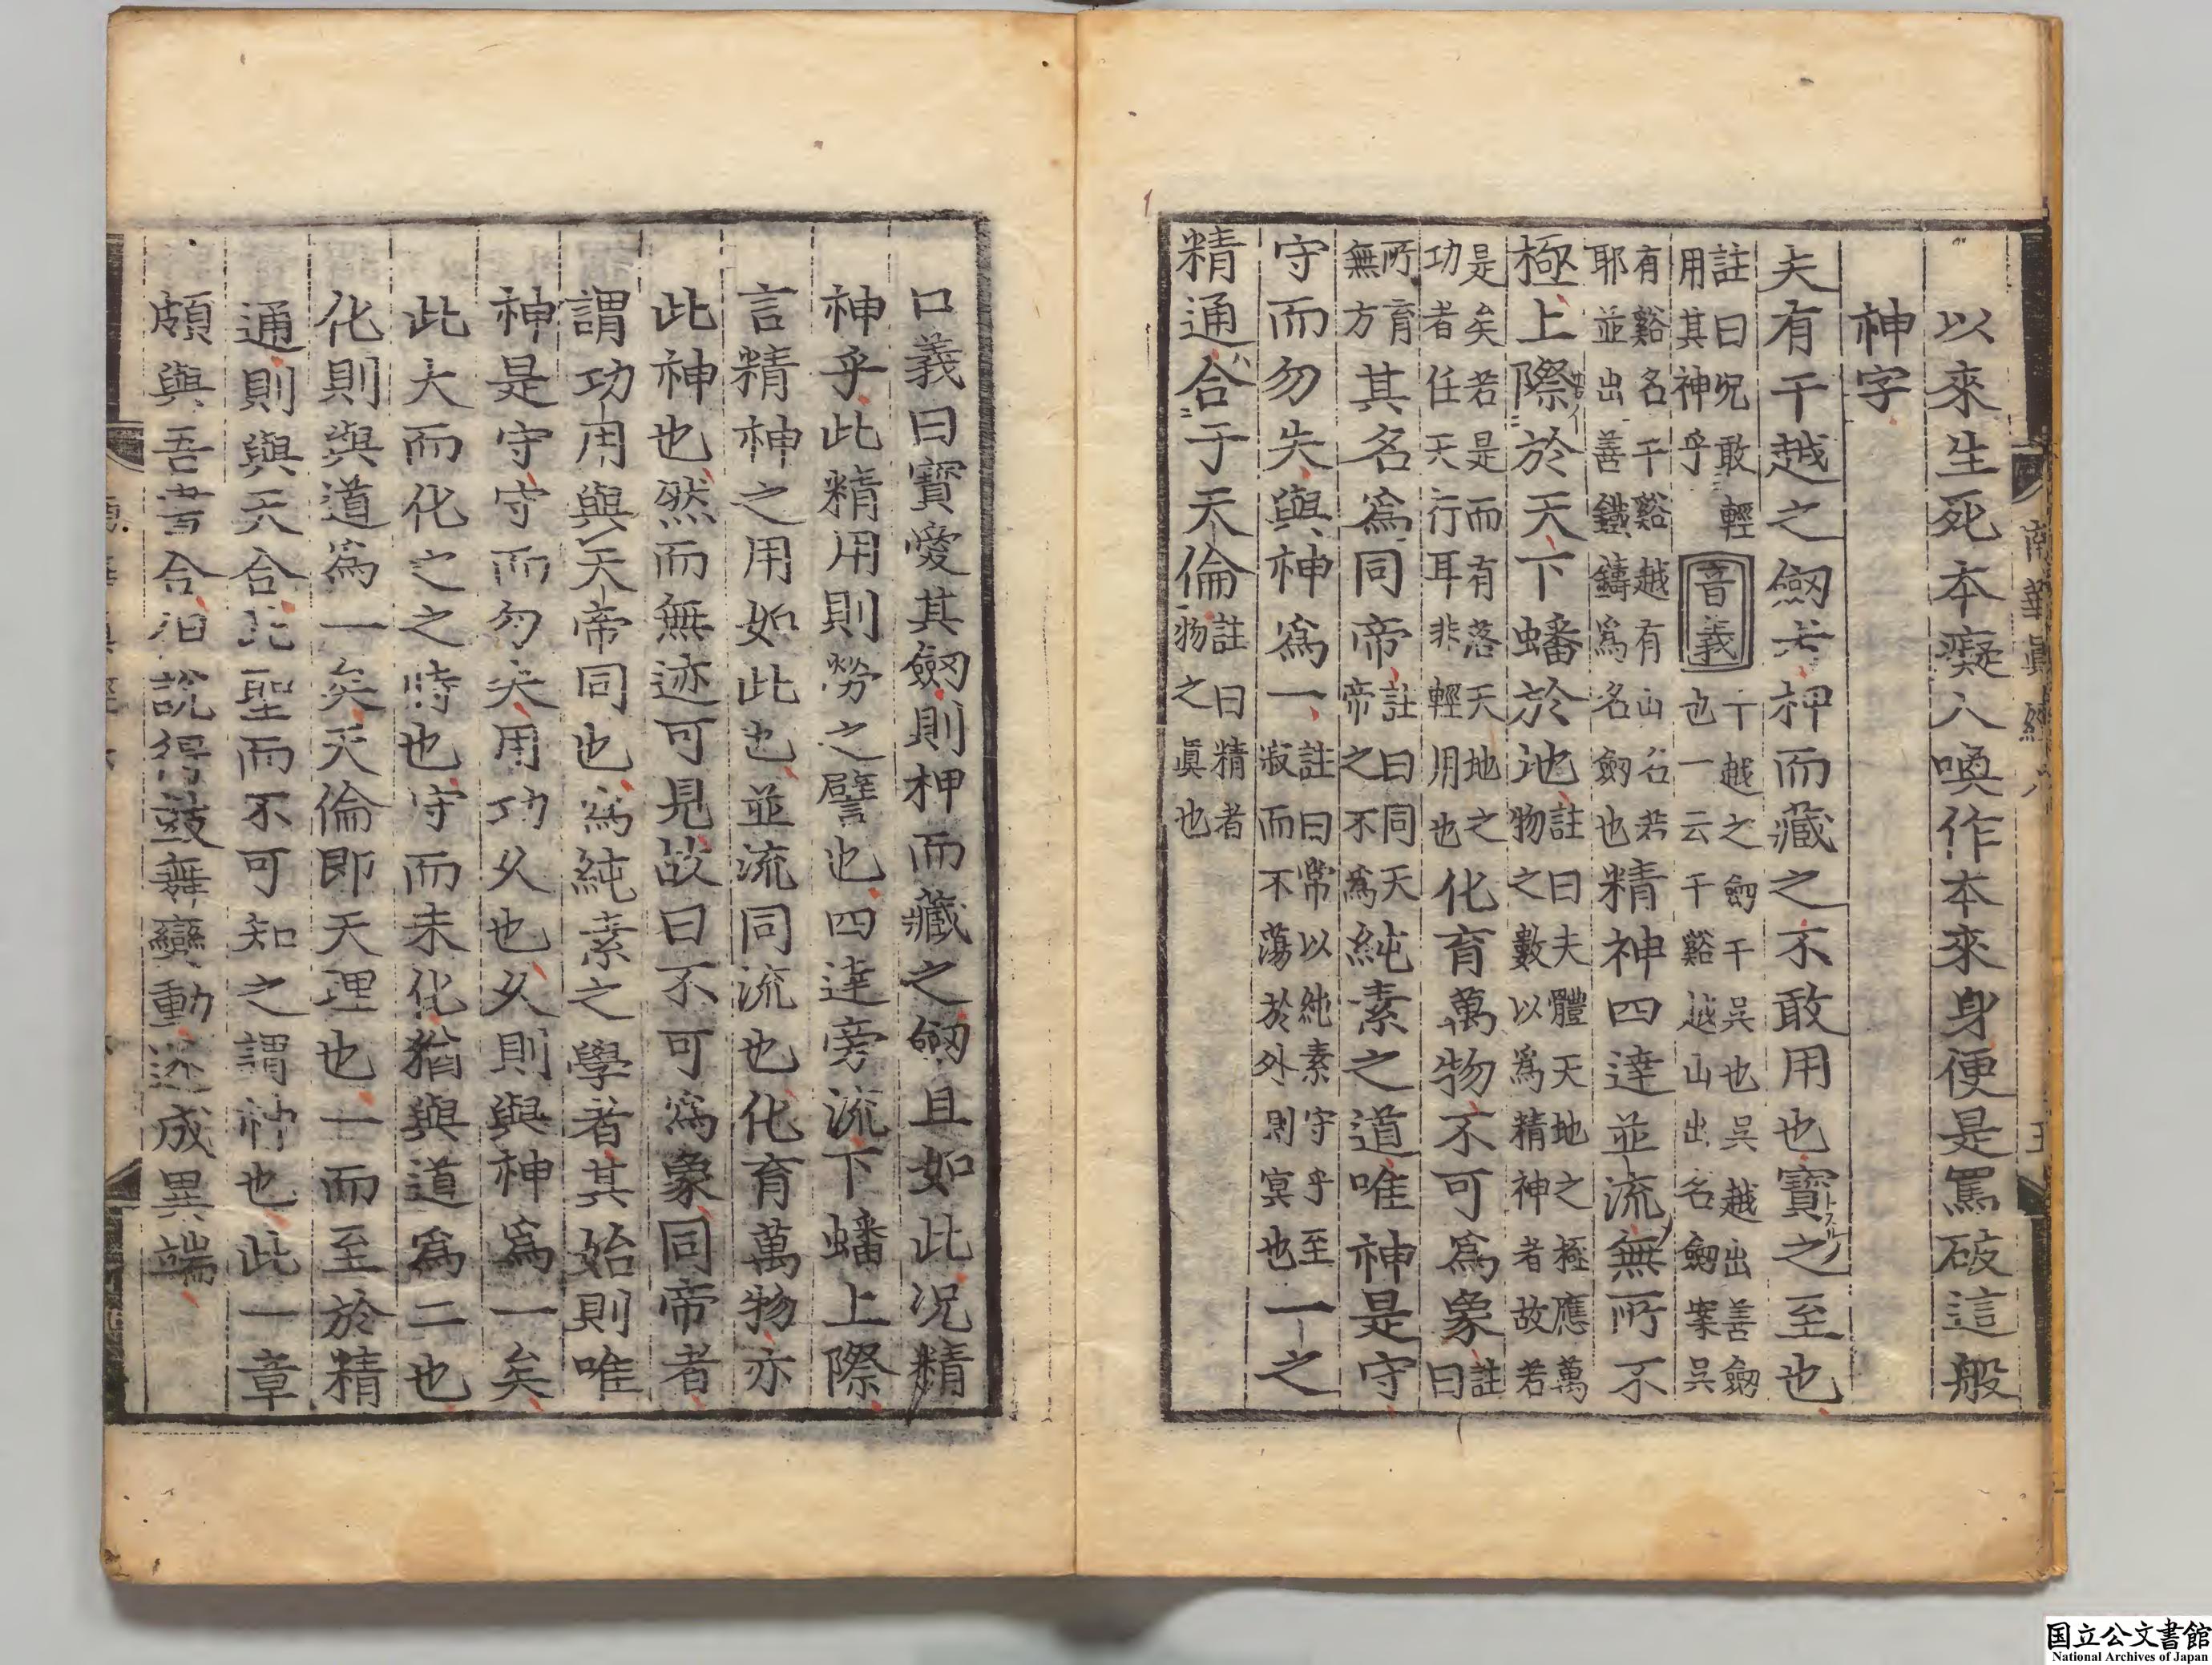 以來生死本癡人喚作本來身便是罵破這般
神字
夫有干越之劒者柙而藏之不敢用也寶之至也
註曰况敢輕
用其神乎
音義
干越之劒干吳也吳越出善劒
也一云干谿越山出名劒案吳
有谿名干谿越有山名若
耶並出善鐵鑄爲名劒也
精神四達並流無所不
極上際於天下蟠於地
註曰夫體天地之極應萬
物之數以爲精神者故若
是矣若是而有落天地之
功者任天行耳非輕用也
化育萬物不可爲象
註
曰
所育
無方
其名爲同帝
註曰同天
帝之不爲
純素之道唯神是守
守而勿失與神爲一
註曰常以純素守乎至
寂而不蕩於外則冥也
一之
精通合于天倫
註曰精者
物之眞也
口義曰寶愛其劒則柙而藏之劒且如此况精
神乎此精用則勞之譬也四達旁流下蟠上際
言精神之用如此也並流同流也化育萬物亦
此神也然而無迹可見故曰不可爲象同帝者
謂功用與天帝同也爲純素之學者其始則唯
神是守守而勿失用功久也久則與神爲一矣
此大而化之之時也守而未化猶與道爲二也
化則與道爲一矣天倫即天理也一而至於精
通則與天合此聖而不可知之謂神也此一章
頗與吾書合但說得鼓舞變動遂成異端
南華眞經六
国立公文書館
National Archives of Japan